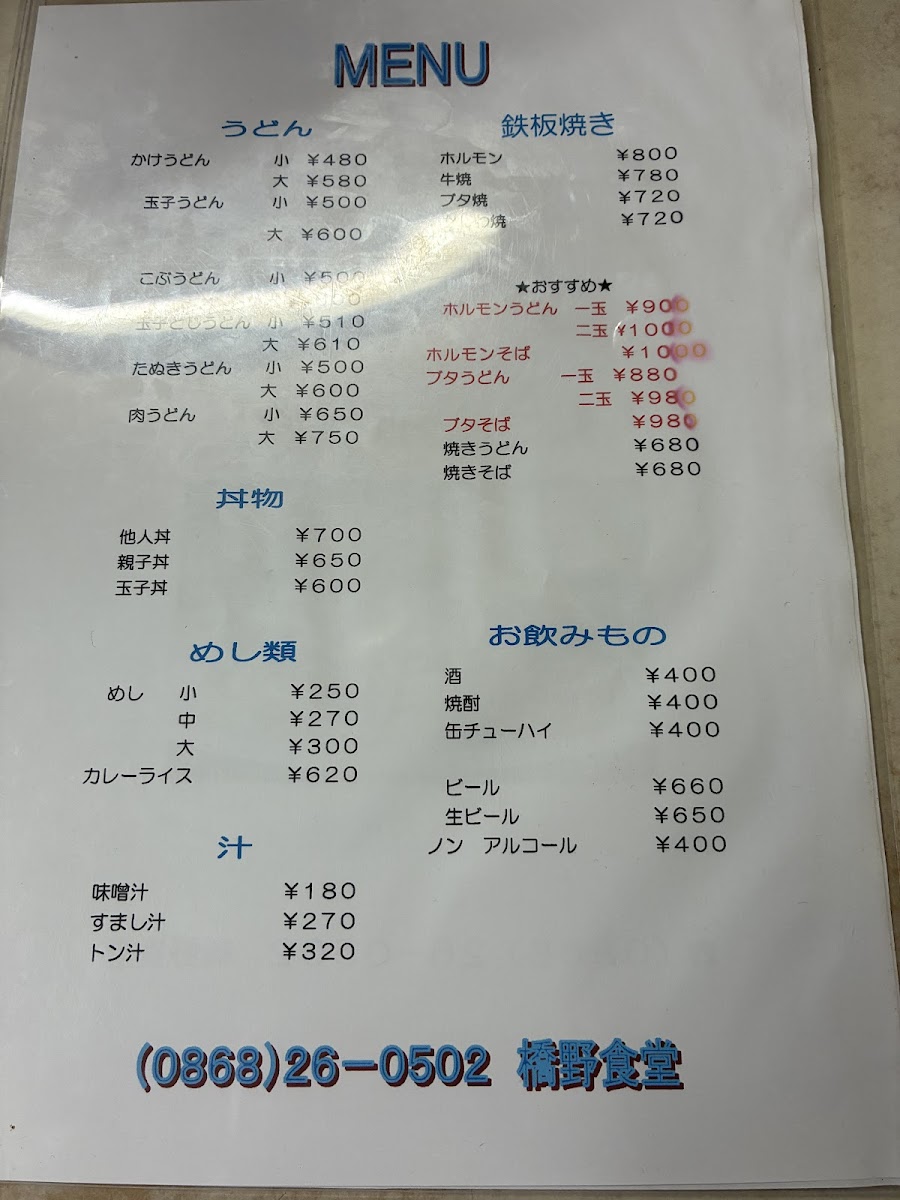 MENU
うどん
かけうどん 小 ¥480
大 ¥580
玉子うどん 小 ¥500
大 ¥600
こぶうどん 小 ¥500
玉子とじうどん 小 ¥510
大 ¥610
たぬきうどん 小 ¥500
大 ¥600
肉うどん 小 ¥650
大 ¥750
丼物
他人丼 ¥700
親子丼 ¥650
玉子丼 ¥600
めし類
めし 小 ¥250
中 ¥270
大 ¥300
カレーライス ¥620
汁
味噌汁 ¥180
すまし汁 ¥270
トン汁 ¥320
鉄板焼き
ホルモン ¥800
牛焼 ¥780
ブタ焼 ¥720
焼 ¥720
★おすすめ★
ホルモンうどん 一玉 ¥900
二玉 ¥1000
ホルモンそば ¥1000
ブタうどん 一玉 ¥880
二玉 ¥980
ブタそば ¥980
焼きうどん ¥680
焼きそば ¥680
お飲みもの
酒 ¥400
焼酎 ¥400
缶チューハイ ¥400
ビール ¥660
生ビール ¥650
ノン アルコール ¥400
(0868)26-0502 橋野食堂